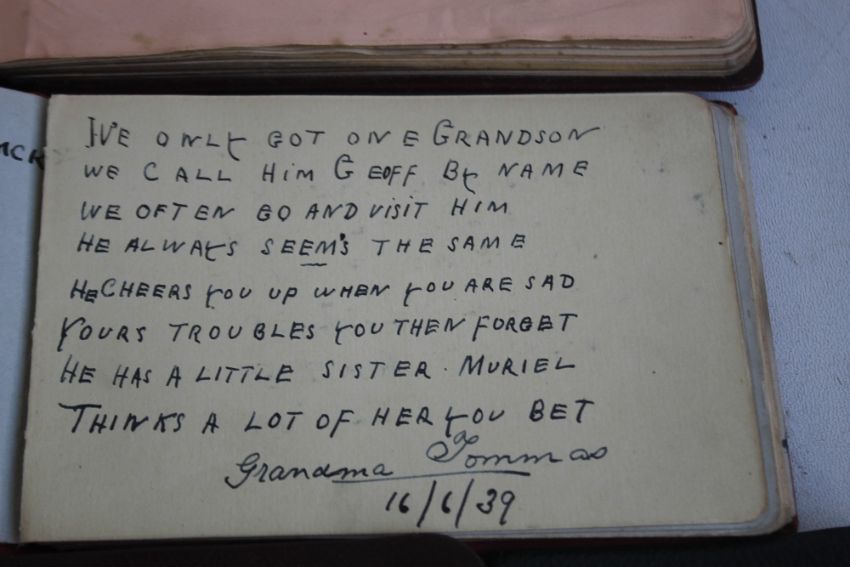 ACK
I'VE ONLY GOT ONE GRANDSON
WE CALL HIM GEOFF BY NAME
WE OFTEN GO AND VISIT HIM
HE ALWAYS SEEM'S THE SAME
HE CHEERS YOU UP WHEN YOU ARE SAD
YOURS TROUBLES YOU THEN FORGET
HE HAS A LITTLE SISTER. MURIEL
THINKS A LOT OF HER YOU BET
Grandma Tommas
16/6/39